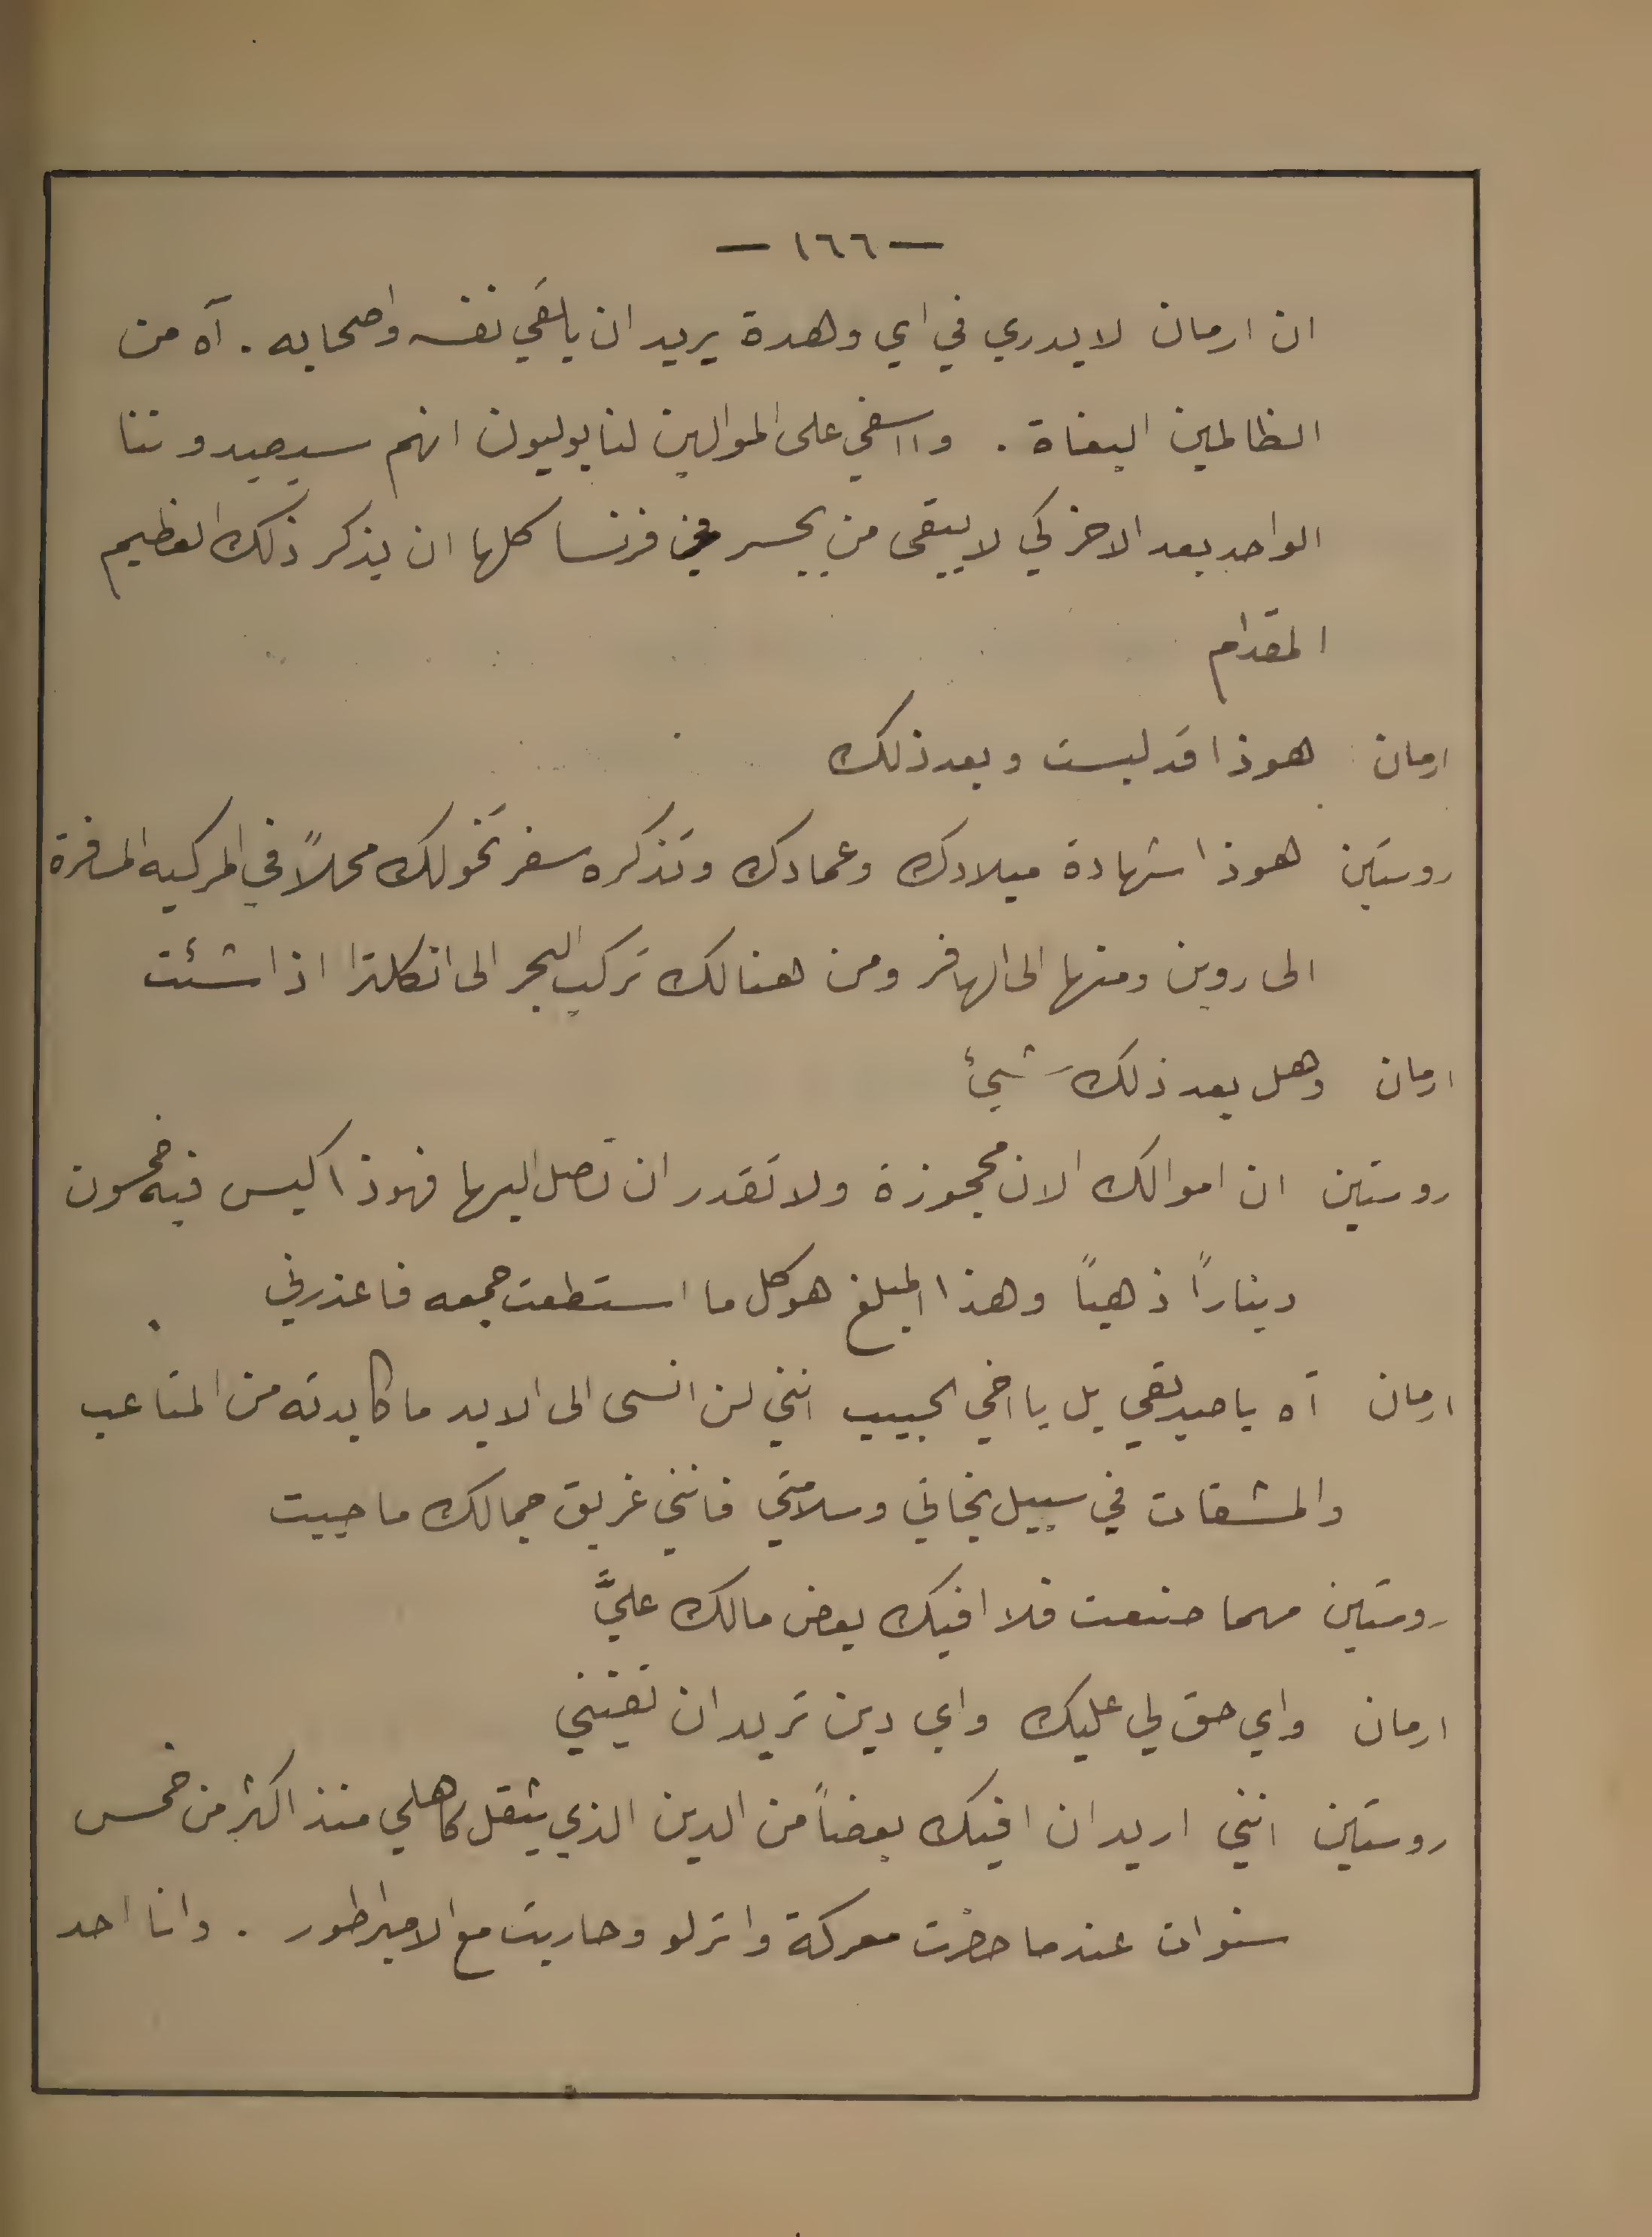 — ١٦٦ —
ان ارمان لا يدري في اي وهدة يريد ان يلقي نفسه واصحابه . آه من
الظالمين البغاة . وااسفي على الموالين لنابوليون انهم سيصيدوننا
الواحد بعد الاخر كي لا يبقى من يجسر في فرنسا كلها ان يذكر ذلك العظيم
المقدام
ارمان : هوذا قد لبست وبعد ذلك
روستين هوذا شهادة ميلادك وعمادك وتذكره سفر تخولك محلاً في المركبه المسافرة
الى روين ومنها الى الهافر ومن هنالك تركب البحر الى انكلترا اذا شئت
ارمان وهل بعد ذلك شيئ
روستين ان اموالك الان محجوزة ولا تقدر ان تصل اليها فهوذا كيس فيه خمسون
ديناراً ذهباً وهذا المبلغ هو كل ما استطعت جمعه فاعذرني
ارمان آه يا صديقي بل يا اخي الحبيب انني لن انسى الى الابد ما كابدته من المتاعب
والمشقات في سبيل نجاتي وسلامتي فانني غريق جمالك ما حييت
روستين مهما صنعت فلا افيك بعض مالك عليَّ
ارمان واي حق لي عليك واي دين تريد ان تفيني
روستين انني اريد ان افيك بعضاً من الدين الذي يثقل كاهلي منذ اكثر من خمس
سنوات عندما حضرت معركة واترلو وحاربت مع الامبراطور . وانا احد